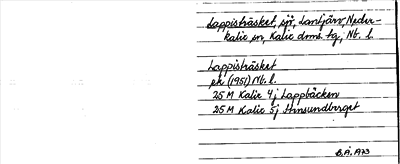 Lappisträsket, sjö, Santjärv, Neder-
kalix sn, Kalix dms tg, Nb. l.
Lappisträsket
ek (1951) Nb. l.
25 M Kalix 4j Lappbäcken
25 M Kalix 5j Hinsundberget
B.Å. A73